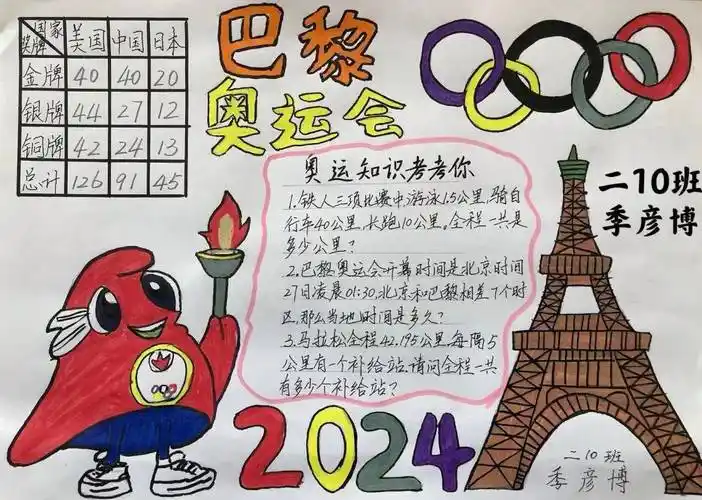 国家
奖牌
美国 中国 日本
金牌 40 40 20
银牌 44 27 12
铜牌 42 24 13
总计 126 91 45
巴黎
奥运会
奥运知识考考你
1.铁人三项比赛中,游泳1.5公里,骑自
行车40公里,长跑10公里。全程一共是
多少公里?
2.巴黎奥运会开幕时间是北京时间
27日凌晨01:30,北京和巴黎相差7个时
区,那么当地时间是多久?
3.马拉松全程42.195公里,每隔5
公里有一个补给站.请问全程一共
有多少个补给站?
二10班
季彦博
2024
二10班
季彦博